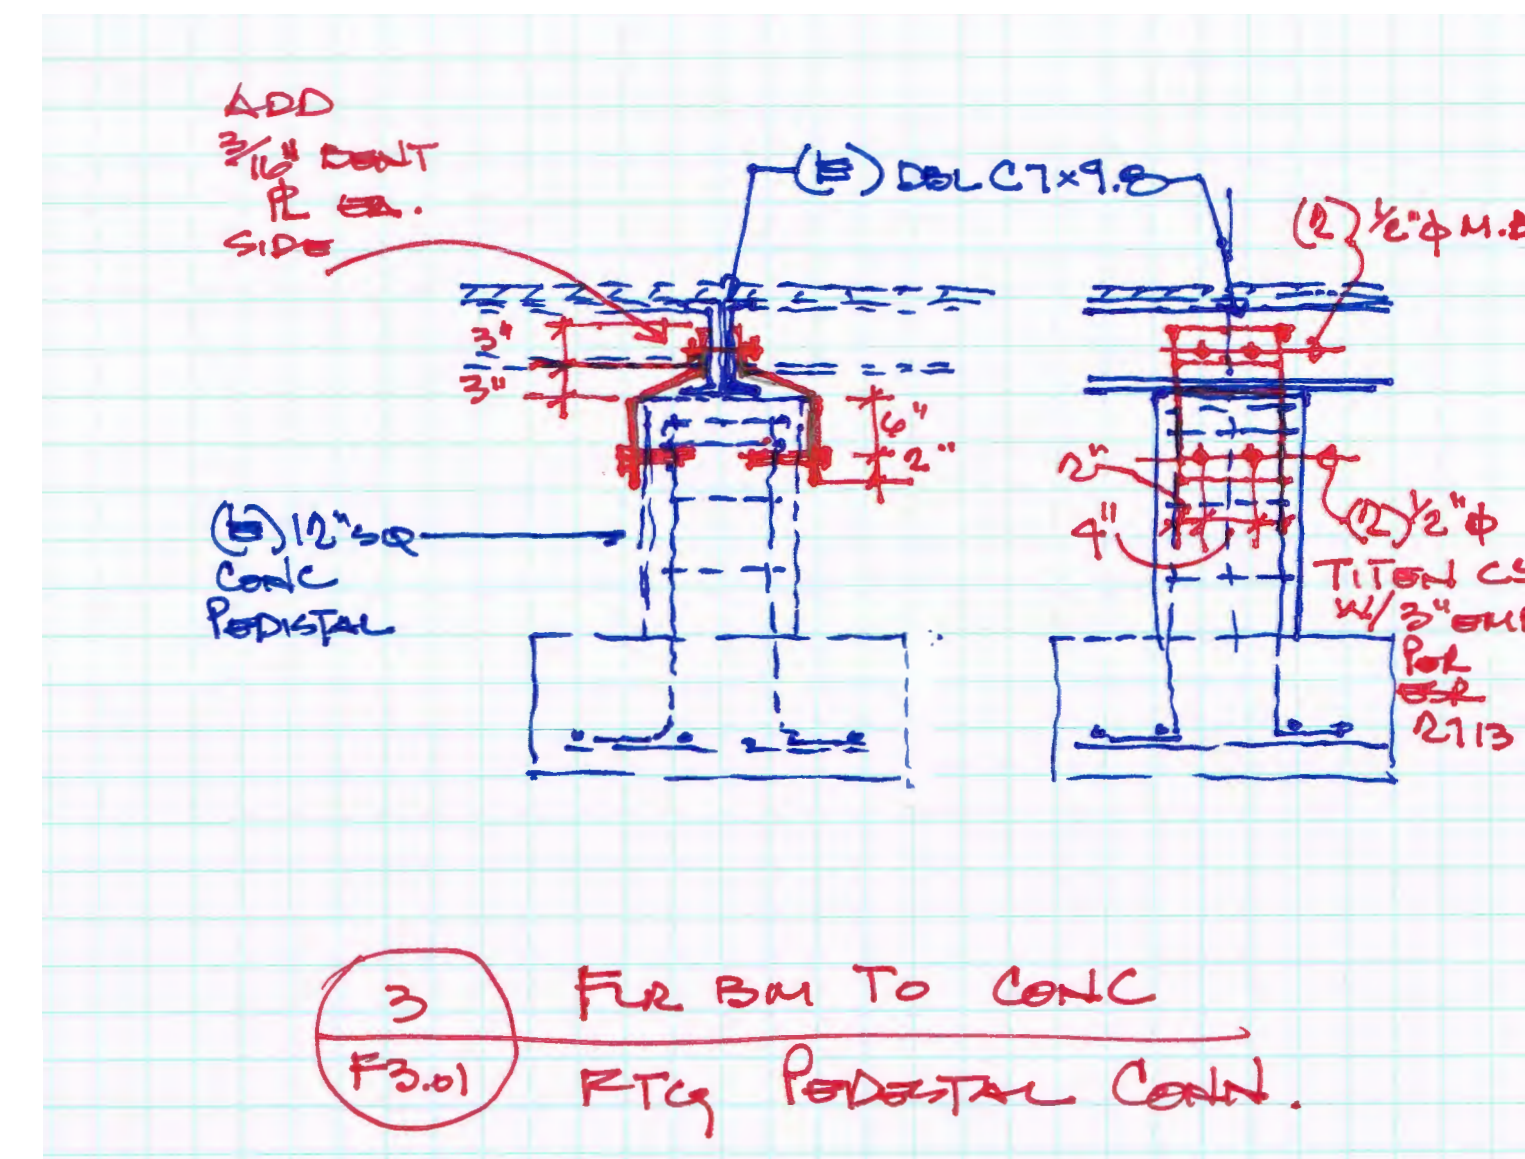 ADD
3/16" BENT
PL EA.
SIDE
(E) DBL C7x9.8
(2) 1/2"ϕ M.B
3"
3"
6"
2"
2"
4"
(E) 12" SQ
CONC
PEDISTAL
(2) 1/2"ϕ
TITEN CS
W/ 3" EMB
PER
ESR
2713
3
F3.01
FLR BM TO CONC
FTG PEDESTAL CONN.